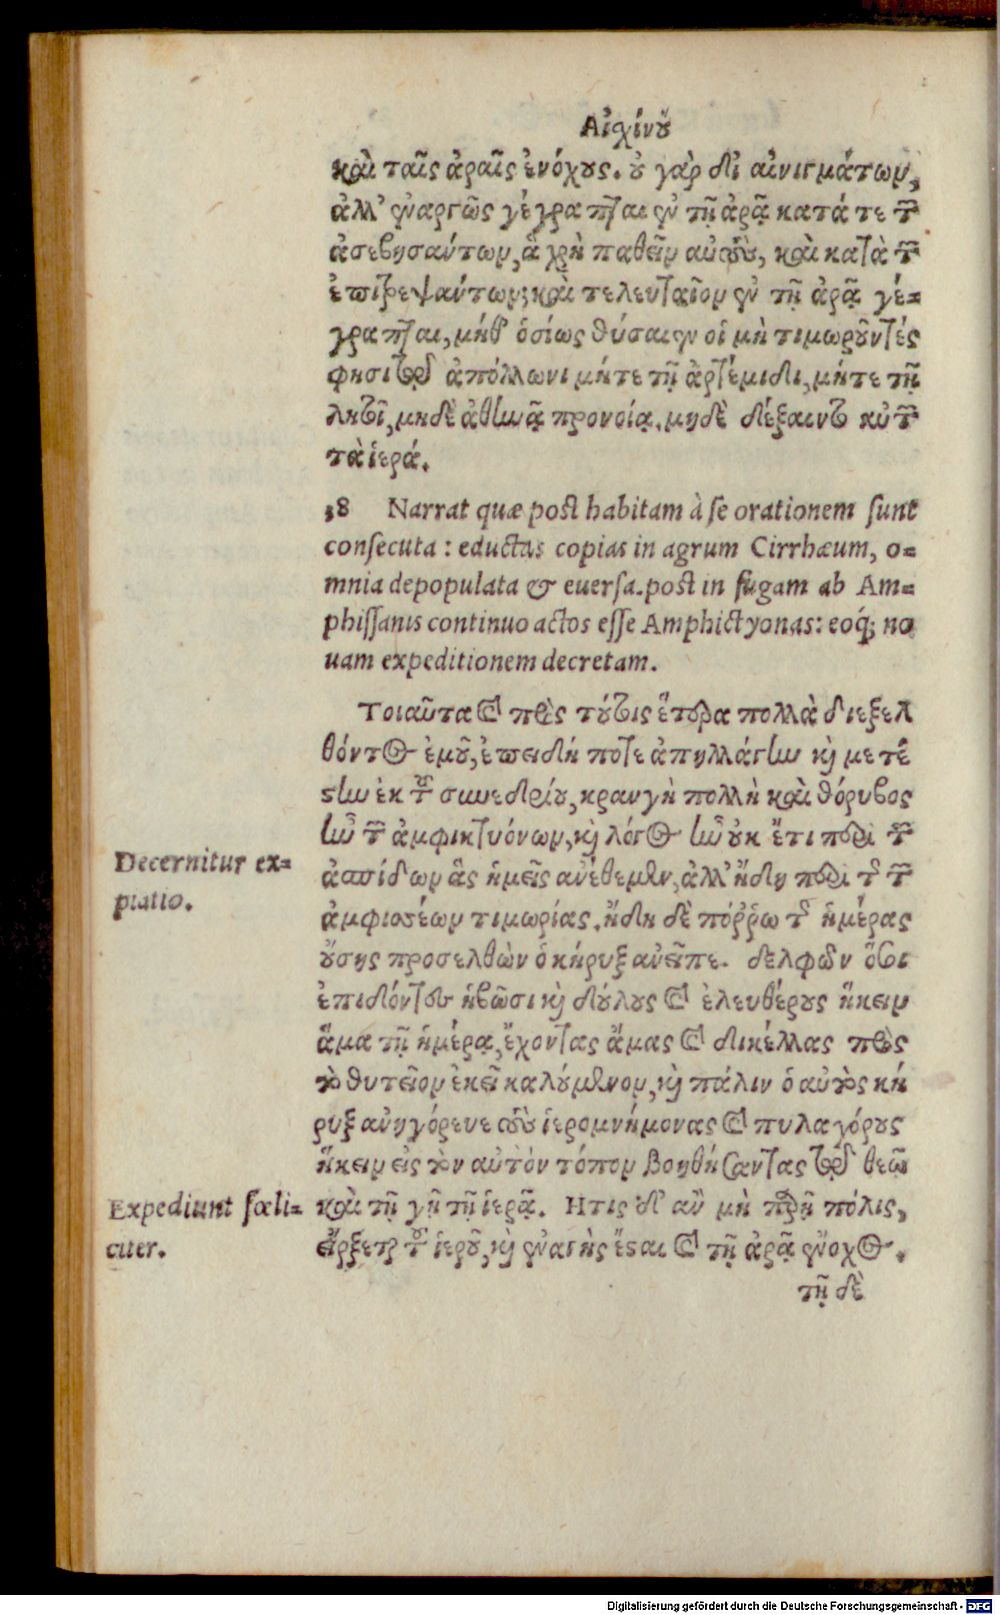 Αἰσχίνου
καὶ ταῖς ἀραῖς ἐνόχους. οὐ γὰρ δι' αἰνιγμάτων,
ἀλλ' ἐναργῶς γέγραπται ἐν τῇ ἀρᾷ κατά τε τῶν
ἀσεβησάντων, ἃ χρὴ παθεῖν αὐτοὺς, καὶ κατὰ τῶν
ἐπιτρεψάντων; καὶ τελευταῖον ἐν τῇ ἀρᾷ γέ-
γραπται, μήθ' ὁσίως θύσαιεν οἱ μὴ τιμωροῦντές
φησι τῷ ἀπόλλωνι μήτε τῇ ἀρτέμιδι, μήτε τῇ
λητοῖ, μηδὲ ἀθηνᾷ προνοίᾳ. μηδὲ δέξαιντο αὐτῶν
τὰ ἱερά.
38 Narrat quæ post habitam à se orationem sunt
consecuta : eductas copias in agrum Cirrhæum, o-
mnia depopulata & euersa. post in fugam ab Am-
phissanis continuo actos esse Amphictyonas: eoq́; no
uam expeditionem decretam.
τοιαῦτα καὶ πρὸς τούτοις ἕτερα πολλὰ διεξελ
θόντος ἐμοῦ, ἐπειδή ποτε ἀπηλλάγην καὶ μετέ
στην ἐκ τοῦ συνεδρίου, κραυγὴ πολλὴ καὶ θόρυβος
ἦν τῶν ἀμφικτυόνων, καὶ λόγος ἦν οὐκ ἔτι περὶ τῶν
Decernitur ex-
piatio.
ἀσπίδων ἃς ἡμεῖς ἀνέθεμεν, ἀλλ' ἤδη περὶ τῆς τῶν
ἀμφισσέων τιμωρίας. ἤδη δὲ πόῤῥω τῆς ἡμέρας
οὔσης προσελθὼν ὁ κήρυξ ἀνεῖπε. δελφῶν ὅσοι
ἐπιδιετὲς ἡβῶσι καὶ δούλους καὶ ἐλευθέρους ἥκειν
ἅμα τῇ ἡμέρᾳ, ἔχοντας ἄμας καὶ δικέλλας πρὸς
τὸ θυτεῖον ἐκεῖ καλούμενον, καὶ πάλιν ὁ αὐτὸς κή
ρυξ ἀνηγόρευε τοὺς ἱερομνήμονας καὶ πυλαγόρους
ἥκειν εἰς τὸν αὐτὸν τόπον βοηθήσαντας τῷ θεῷ
Expediunt fœli-
citer.
καὶ τῇ γῇ τῇ ἱερᾷ. Ητις δ' ἂν μὴ παρῇ πόλις,
εἴρξεται τοῦ ἱεροῦ, καὶ ἐναγὴς ἔσται καὶ τῇ ἀρᾷ ἔνοχος.
τῇ δὲ
Digitalisierung gefördert durch die Deutsche Forschungsgemeinschaft - DFG